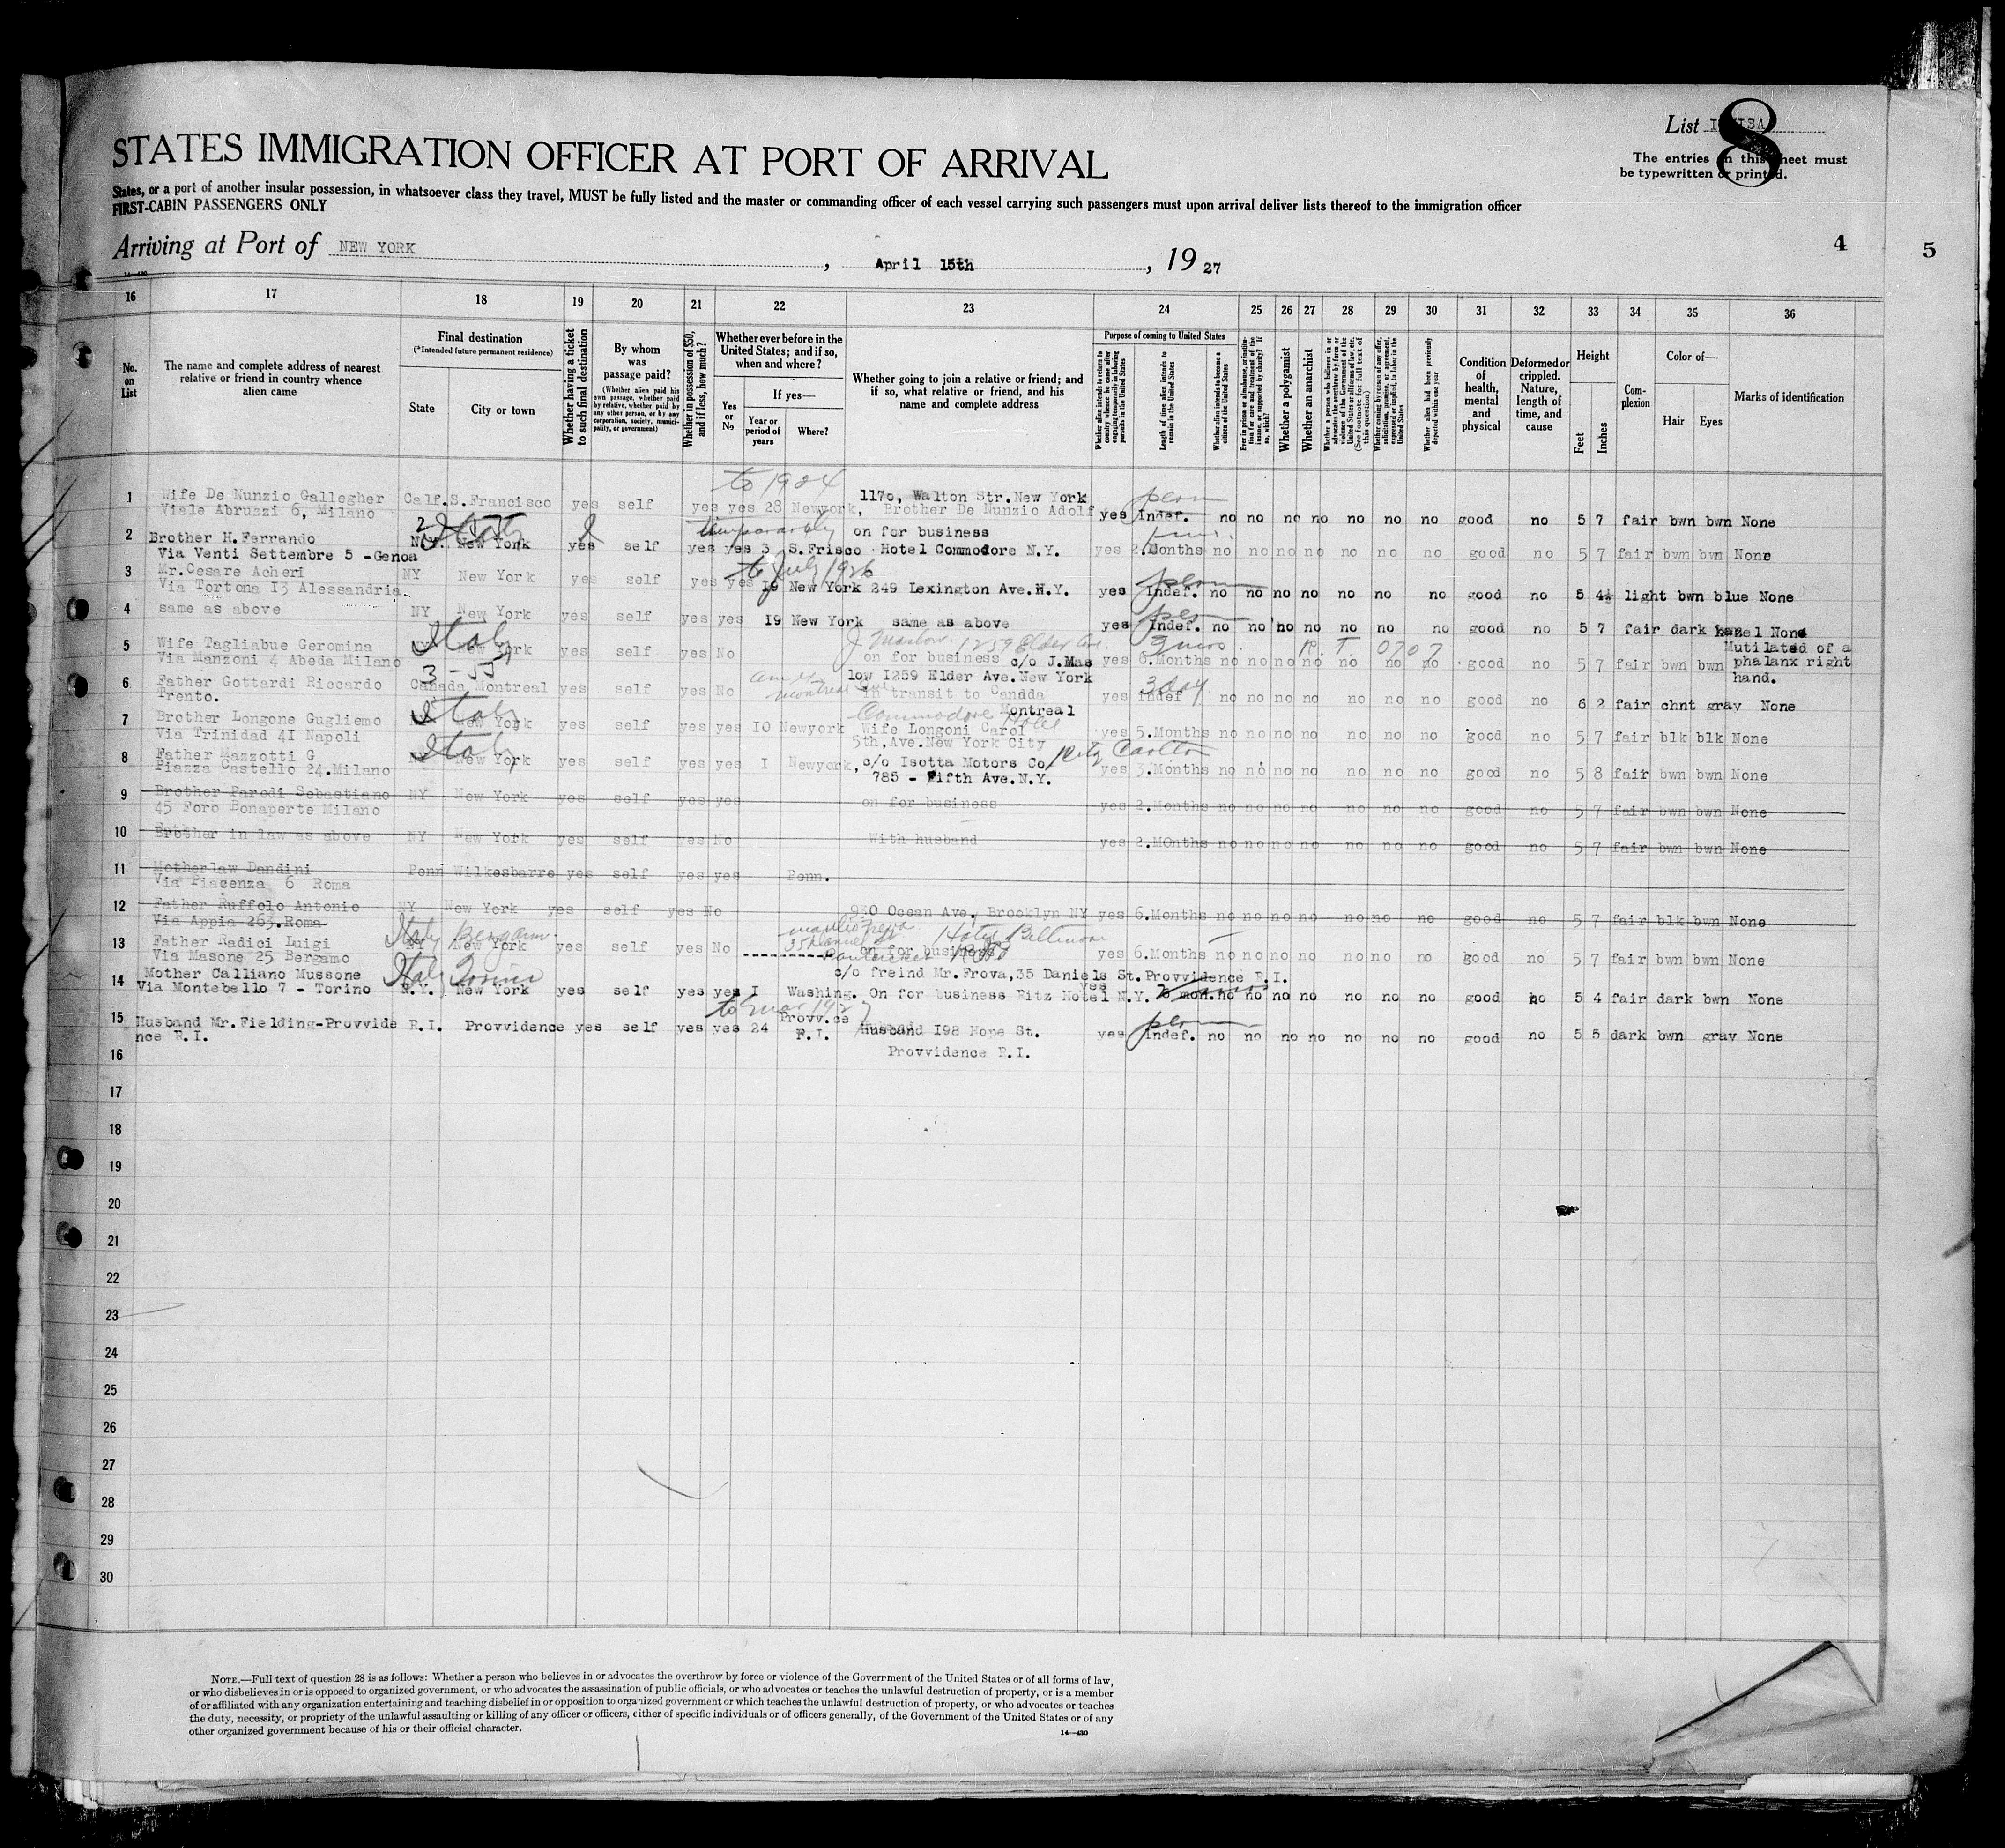 List
8
The entries on this sheet must
be typewritten or printed.
STATES IMMIGRATION OFFICER AT PORT OF ARRIVAL
States, or a port of another insular possession, in whatsoever class they travel, MUST be fully listed and the master or commanding officer of each vessel carrying such passengers must upon arrival deliver lists thereof to the immigration officer
FIRST-CABIN PASSENGERS ONLY
Arriving at Port of NEW YORK, April 15th, 1927
4
5
14—430
16 17 18 19 20 21 22 23 24 25 26 27 28 29 30 31 32 33 34 35 36
No. on List
The name and complete address of nearest relative or friend in country whence alien came
Final destination
(*Intended future permanent residence)
State
City or town
Whether having a ticket to such final destination
By whom was passage paid?
(Whether alien paid his own passage, whether paid by relative, whether paid by any other person, or by any corporation, society, municipality, or government)
Whether in possession of $50, and if less, how much?
Whether ever before in the United States; and if so, when and where?
Yes or No
If yes—
Year or period of years
Where?
Whether going to join a relative or friend; and if so, what relative or friend, and his name and complete address
Purpose of coming to United States
Whether alien intends to return to country whence he came after engaging temporarily in laboring pursuits in the United States
Length of time alien intends to remain in the United States
Whether alien intends to become a citizen of the United States
Ever in prison or almshouse, or institution for care and treatment of the insane, or supported by charity? If so, which?
Whether a polygamist
Whether an anarchist
Whether a person who believes in or advocates the overthrow by force or violence of the Government of the United States or all forms of law, etc. (See footnote for full text of this question)
Whether coming by reason of any offer, solicitation, promise, or agreement, expressed or implied, to labor in the United States
Whether alien had been previously deported within one year
Condition of health, mental and physical
Deformed or crippled. Nature, length of time, and cause
Height
Feet
Inches
Complexion
Color of—
Hair
Eyes
Marks of identification
to 1904
1170, Walton Str. New York
perm
1 Wife De Nunzio Gallegher Calf. S. Francisco yes self yes yes 28 Newyork, Brother De Nunzio Adolf yes Indef. no no no no no no no good no 5 7 fair bwn bwn None
Viale Abruzzi 6, Milano
Italy
temporarily on for business
2 Brother H. Ferrando N.Y. New York yes self yes yes 3 S. Frisco Hotel Commodore N.Y. yes 2. Months no no no no no no no good no 5 7 fair bwn bwn None
Via Venti Settembre 5 - Genoa
to July 1926
3 Mr. Cesare Acheri NY New York yes self yes yes 19 New York 249 Lexington Ave. N.Y. yes Indef. no no no no no no no good no 5 4½ light bwn blue None
perm
Via Tortona 13 Alessandria
4 same as above NY New York yes self yes yes 19 New York same as above yes Indef. no no no no no no no good no 5 7 fair dark hazel None
Italy
J Maslow 1259 Elder Ave.
3 mos
P. T. 0707
5 Wife Tagliabue Geromina NY New York yes self yes No on for business c/o J. Mas yes 6. Months no no no no no no no good no 5 7 fair bwn bwn Mutilated of a
Via Manzoni 4 Abeda Milano low 1259 Elder Ave. New York phalanx right
hand.
3 - 55
3 day
6 Father Gottardi Riccardo Canada Montreal yes self yes No in transit to Candda yes Indef no no no no no no no good no 6 2 fair chnt gray None
Trento. Montreal
Italy
Commodore Hotel
7 Brother Longone Gugliemo NY New York yes self yes yes 10 Newyork Wife Longoni Carol yes 5. Months no no no no no no no good no 5 7 fair blk blk None
Via Trinidad 41 Napoli 5th, Ave. New York City
Italy
Ritz Carlton
8 Father Mazzotti G NY New York yes self yes yes I Newyork, c/o Isotta Motors Co. yes 3. Months no no no no no no no good no 5 8 fair bwn bwn None
Piazza Castello 24. Milano 785 - Fifth Ave. N.Y.
9 Brother Parodi Sebastiano NY New York yes self yes yes on for business yes 2. Months no no no no no no no good no 5 7 fair bwn bwn None
45 Foro Bonaperte Milano
10 Brother in law as above NY New York yes self yes No With husband yes 2. MOnths no no no no no no no good no 5 7 fair bwn bwn None
11 Motherlaw Dandini Penn Wilkesbarre yes self yes yes Penn.
Via Piacenza 6 Roma
12 Father Ruffolo Antonio NY New York yes self yes No 930 Ocean Ave. Brooklyn NY yes 6. Months no no no no no no no good no 5 7 fair blk bwn None
Via Appia 263. Roma
Italy Bergamo
Hotel Biltmore
13 Father Radici Luigi NY New York yes self yes No on for business yes 6. Months no no no no no no no good no 5 7 fair bwn bwn None
Via Masone 25 Bergamo c/o freind Mr. Frova, 35 Daniels St. Provvidence R.I.
Italy Torino
14 Mother Calliano Mussone N.Y. New York yes self yes yes I Washing. On for business Ritz Hotel N.Y. yes 6 mon. no no no no no no no good no 5 4 fair dark bwn None
Via Montebello 7 - Torino
perm
15 Husband Mr. Fielding-Provvide R.I. Provvidence yes self yes yes 24 Provv.ce R.I. Husband 198 Hope St. yes Indef. no no no no no no no good no 5 5 dark bwn gray None
nce R.I.
16 Provvidence R.I.
17
18
19
20
21
22
23
24
25
26
27
28
29
30
NOTE.—Full text of question 28 is as follows: Whether a person who believes in or advocates the overthrow by force or violence of the Government of the United States or of all forms of law,
or who disbelieves in or is opposed to organized government, or who advocates the assassination of public officials, or who advocates or teaches the unlawful destruction of property, or is a member
of or affiliated with any organization entertaining and teaching disbelief in or opposition to organized government or which teaches the unlawful destruction of property, or who advocates or teaches
the duty, necessity, or propriety of the unlawful assaulting or killing of any officer or officers, either of specific individuals or of officers generally, of the Government of the United States or of any
other organized government because of his or their official character.
14—430